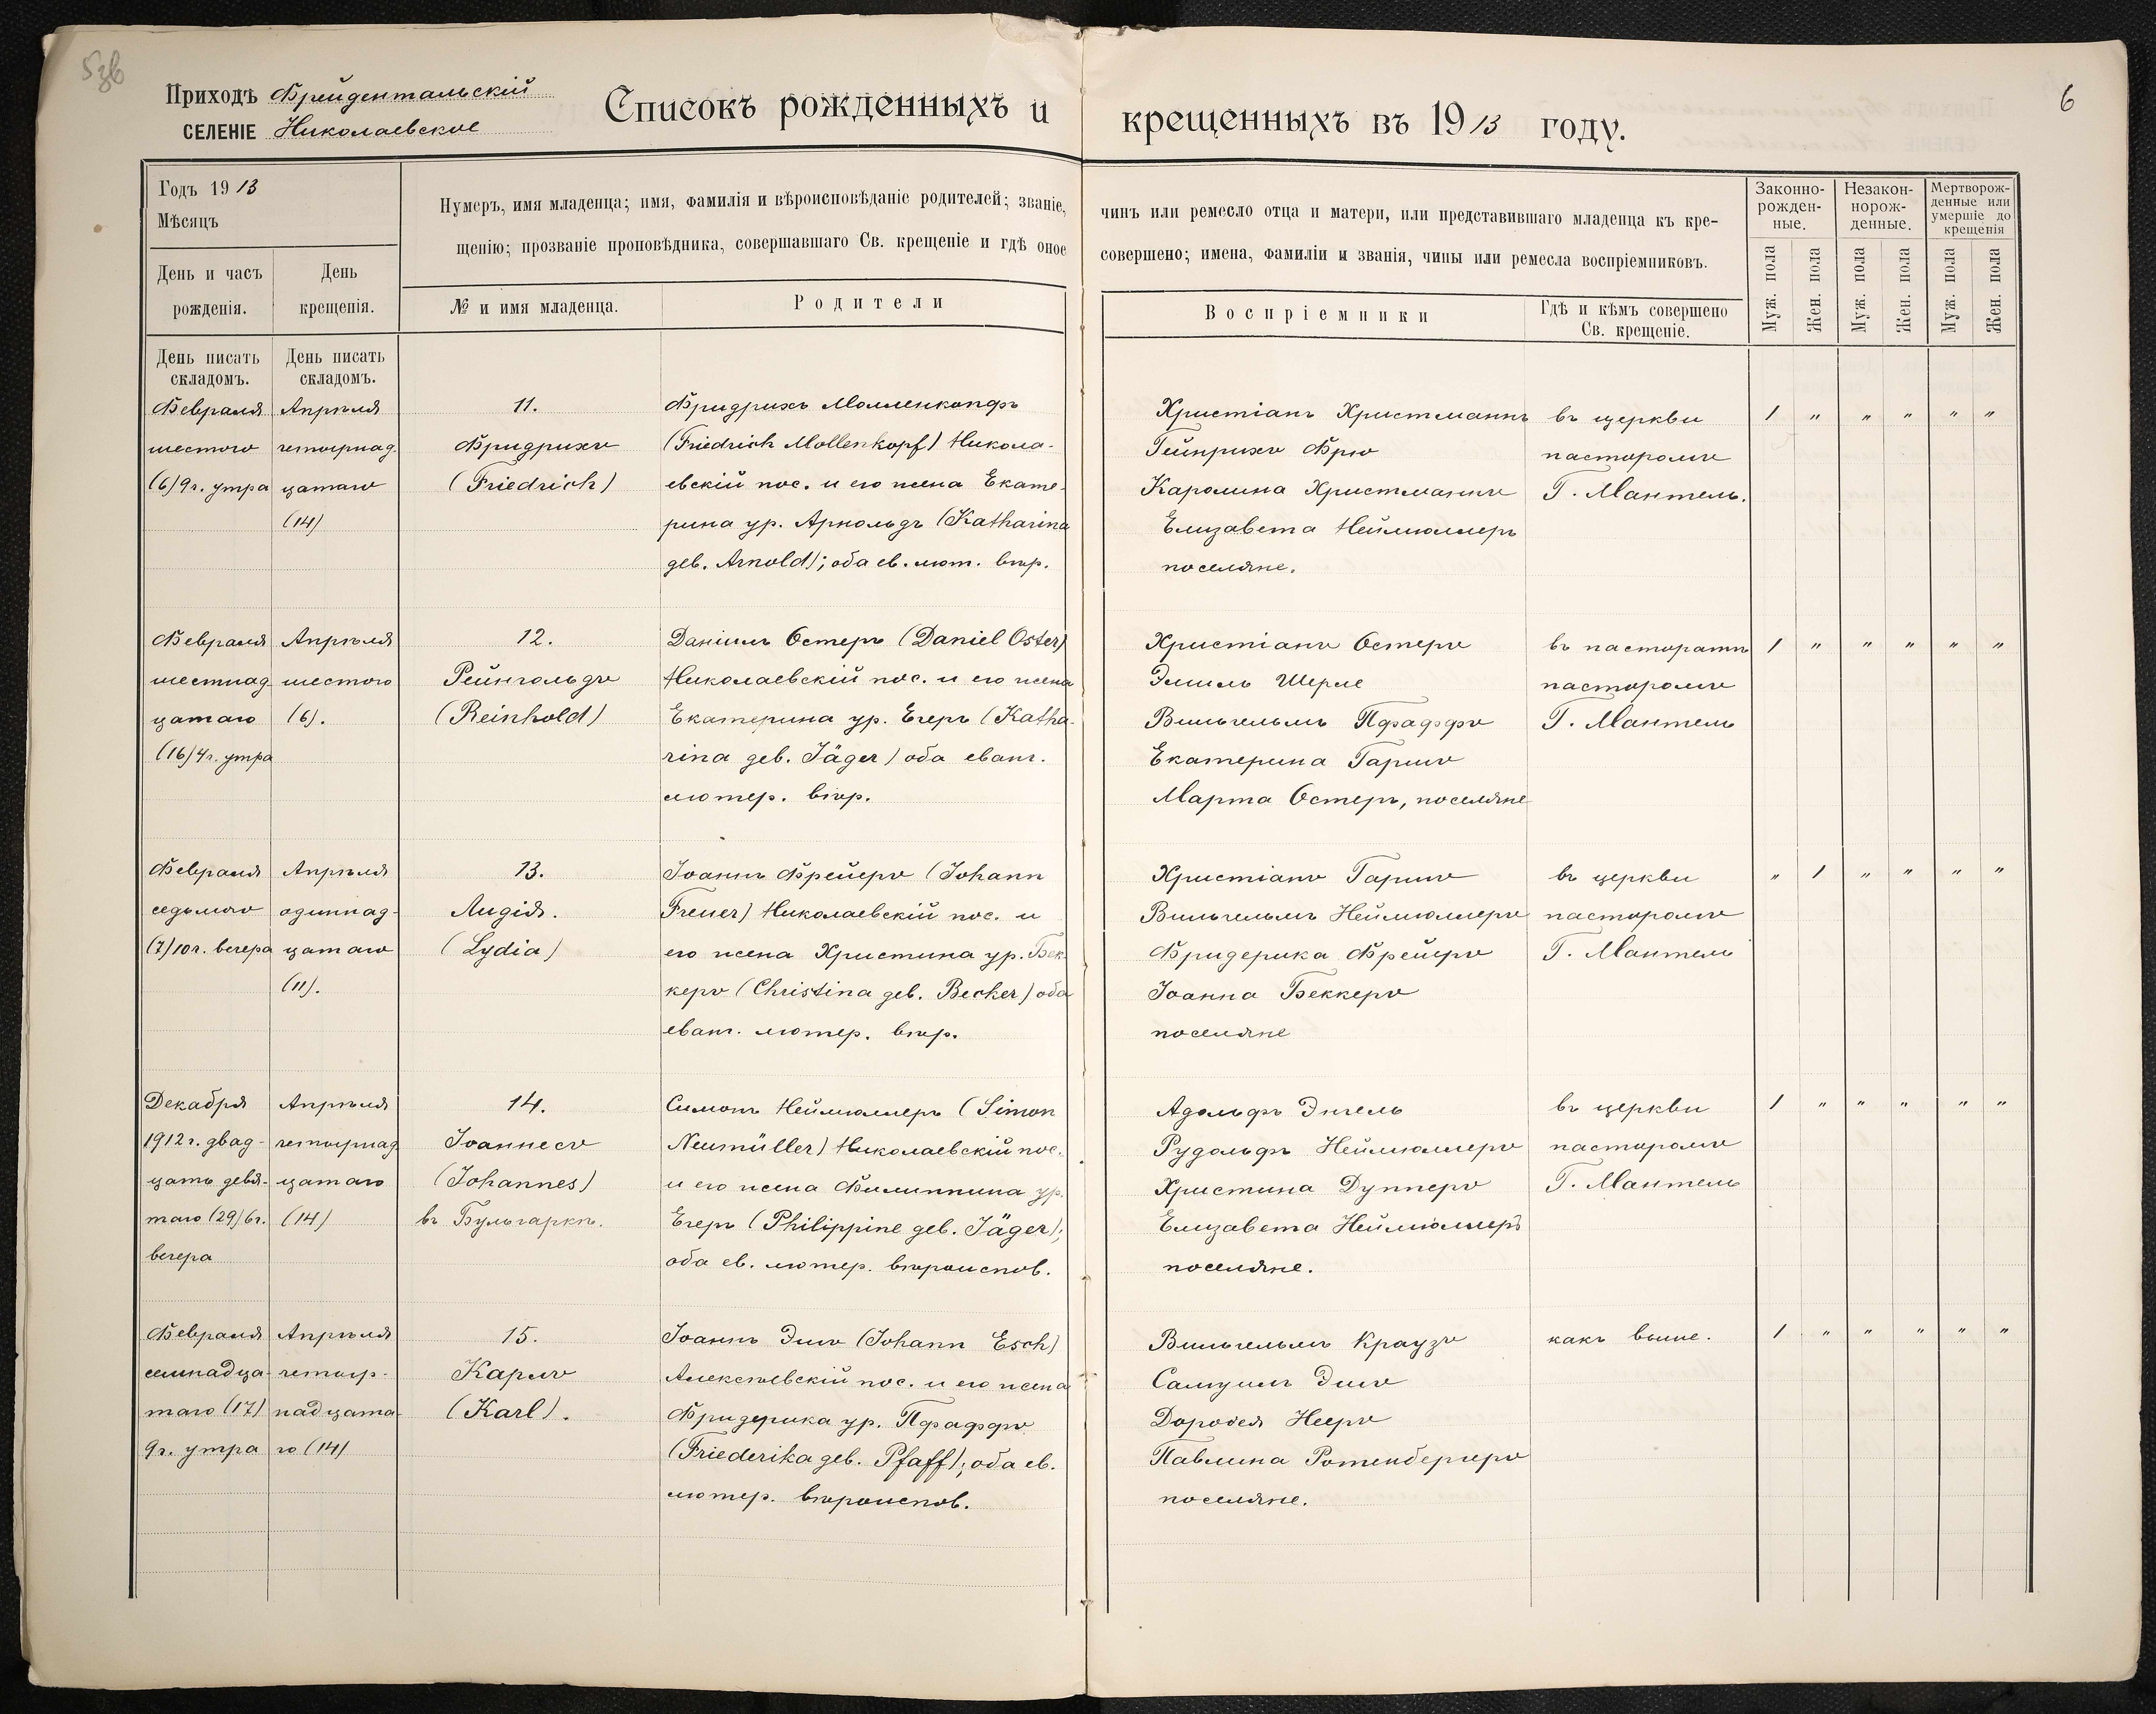 6
Приходъ Фрейдентальскій
СЕЛЕНІЕ Николаевское
Списокъ рожденныхъ и крещенныхъ въ 1913 году.
Годъ 1913
Мѣсяцъ
День и часъ рожденія.
День крещенія.
Нумеръ, имя младенца; имя, фамилія и вѣроисповѣданіе родителей; званіе, чинъ или ремесло отца и матери, или представившаго младенца къ кре-
щенію; прозваніе проповѣдника, совершавшаго Св. крещеніе и гдѣ оное совершено; имена, фамиліи и званія, чины или ремесла воспріемниковъ.
№ и имя младенца.
Родители
Воспріемники
Гдѣ и кѣмъ совершено
Св. крещеніе.
Законно-
рожден-
ные.
Незакон-
норож-
денные.
Мертворож-
денные или
умершіе до
крещенія
Муж. пола
Жен. пола
Муж. пола
Жен. пола
Муж. пола
Жен. пола
День писать
складомъ.
День писать
складомъ.
Февраля
шестого
(6) 9 ч. утра
Апрѣля
четырнад-
цатаго
(14)
11.
Фридрихъ
(Friedrich)
Фридрихъ Молленкопфъ
(Friedrich Mollenkopf) Никола-
евскій пос. и его жена Екате-
рина ур. Арнольдъ (Katharina
geb. Arnold); оба ев. лют. вѣр.
Христіанъ Христманнъ
Гейнрихъ Фрю
Каролина Христманнъ
Елизавета Неймюллеръ
поселяне.
въ церкви
пасторомъ
Г. Мантель.
1 " " " " "
Февраля
шестнад-
цатаго
(16) 4 ч. утра
Апрѣля
шестого
(6).
12.
Рейнгольдъ
(Reinhold)
Даніилъ Остеръ (Daniel Oster)
Николаевскій пос. и его жена
Екатерина ур. Егеръ (Katha-
rina geb. Jäger) оба еванг.
лютер. вѣр.
Христіанъ Остеръ
Эмиль Шерле
Вильгельмъ Пфаффъ
Екатерина Гаршъ
Марта Остеръ, поселяне
въ пасторатѣ
пасторомъ
Г. Мантель
1 " " " " "
Февраля
седьмого
(7) 10 ч. вечера
Апрѣля
одиннад-
цатаго
(11).
13.
Лидія.
(Lydia)
Іоаннъ Фрейеръ (Johann
Freuer) Николаевскій пос. и
его жена Христина ур. Бек-
керъ (Christina geb. Becker) оба
еванг. лютер. вѣр.
Христіанъ Гаршъ
Вильгельмъ Неймюллеръ
Фридерика Фрейеръ
Іоанна Беккеръ
поселяне
въ церкви
пасторомъ
Г. Мантель
" 1 " " " "
Декабря
1912 г. двад-
цать девя-
таго (29) 6 ч.
вечера
Апрѣля
четырнад-
цатаго
(14)
14.
Іоаннесъ
(Johannes)
въ Бульгаркѣ.
Симонъ Неймюллеръ (Simon
Neumüller) Николаевскій пос.
и его жена Филиппина ур.
Егеръ (Philippine geb. Jäger);
оба ев. лютер. вѣроиспов.
Адольфъ Энгель
Рудольфъ Неймюллеръ
Христина Дупперъ
Елизавета Неймюллеръ
поселяне.
въ церкви
пасторомъ
Г. Мантель
1 " " " " "
Февраля
семнадца-
таго (17)
9 ч. утра
Апрѣля
четыр-
надцата-
го (14)
15.
Карлъ
(Karl).
Іоаннъ Эшъ (Johann Esch)
Алексѣевскій пос. и его жена
Фридерика ур. Пфаффъ
(Friederika geb. Pfaff); оба ев.
лютер. вѣроиспов.
Вильгельмъ Краузъ
Самуилъ Эшъ
Доротея Нееръ
Павлина Ротенбергеръ
поселяне.
какъ выше.
1 " " " " "